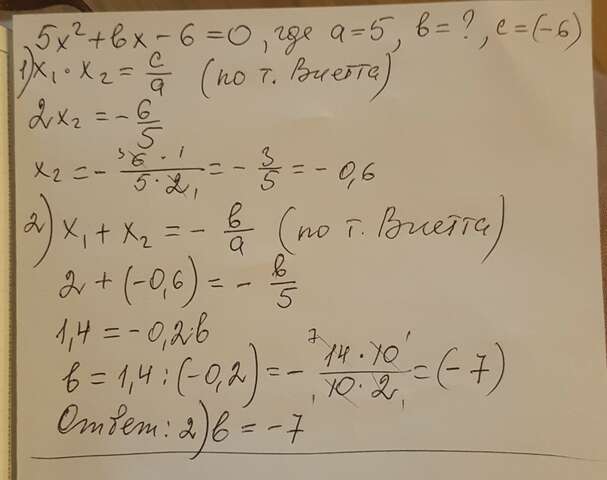 5x² + bx - 6 = 0, где a = 5, b = ?, c = (-6)
1) x₁ · x₂ = c/a (по т. Виетта)
2x₂ = - 6/5
x₂ = - (6 · 1)/(5 · 2) = - 3/5 = - 0,6
2) x₁ + x₂ = - b/a (по т. Виетта)
2 + (-0,6) = - b/5
1,4 = - 0,2b
b = 1,4 : (-0,2) = - (14 · 10)/(10 · 2) = (-7)
Ответ: 2) b = -7